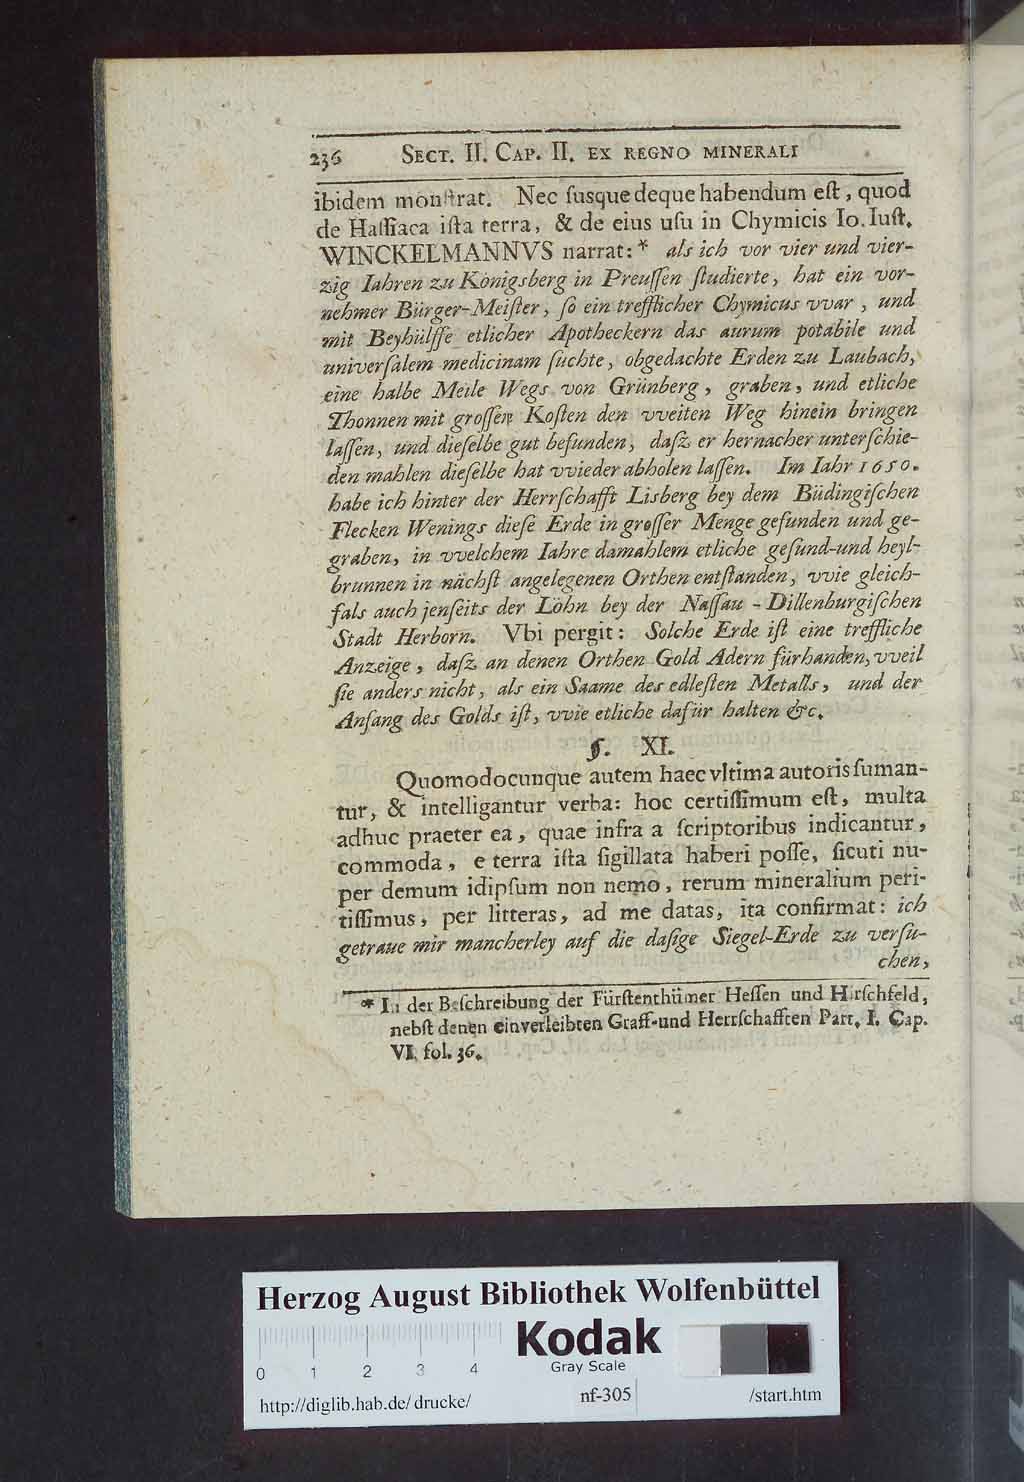 236 SECT. II. CAP. II. EX REGNO MINERALI
ibidem monſtrat. Nec ſusque deque habendum eſt, quod
de Haſſiaca iſta terra, & de eius uſu in Chymicis Io. Iuſt.
WINCKELMANNVS narrat: * als ich vor vier und vier-
zig Iahren zu Königsberg in Preuſſen ſtudierte, hat ein vor-
nehmer Bürger-Meiſter, ſo ein trefflicher Chymicus vvar, und
mit Beyhülffe etlicher Apotheckern das aurum potabile und
univerſalem medicinam ſuchte, obgedachte Erden zu Laubach,
eine halbe Meile Wegs von Grünberg, graben, und etliche
Thonnen mit groſſen Koſten den vveiten Weg hinein bringen
laſſen, und dieſelbe gut befunden, daſz er hernacher unterſchie-
den mahlen dieſelbe hat vvieder abholen laſſen. Im Iahr 1650.
habe ich hinter der Herrſchafft Lisberg bey dem Büdingiſchen
Flecken Wenings dieſe Erde in groſſer Menge gefunden und ge-
graben, in vvelchem Iahre damahlem etliche geſund-und heyl-
brunnen in nächſt angelegenen Orthen entſtanden, vvie gleich-
fals auch jenſeits der Löhn bey der Naſſau - Dillenburgiſchen
Stadt Herborn. Vbi pergit: Solche Erde iſt eine treffliche
Anzeige, daſz an denen Orthen Gold Adern fürhanden, vveil
ſie anders nicht, als ein Saame des edleſten Metalls, und der
Anfang des Golds iſt, vvie etliche dafür halten &c.
§. XI.
Quomodocunque autem haec vltima autoris ſuman-
tur, & intelligantur verba: hoc certiſſimum eſt, multa
adhuc praeter ea, quae infra a ſcriptoribus indicantur,
commoda, e terra iſta ſigillata haberi poſſe, ſicuti nu-
per demum idipſum non nemo, rerum mineralium peri-
tiſſimus, per litteras, ad me datas, ita confirmat: ich
getraue mir mancherley auf die daſige Siegel-Erde zu verſu-
chen,
* In der Beſchreibung der Fürſtenthümer Heſſen und Hirſchfeld,
nebſt denen einverleibten Graff-und Herrſchafften Part. I. Cap.
VI. fol. 36.
Herzog August Bibliothek Wolfenbüttel
Kodak
Gray Scale
0 1 2 3 4
http://diglib.hab.de/drucke/ nf-305 /start.htm